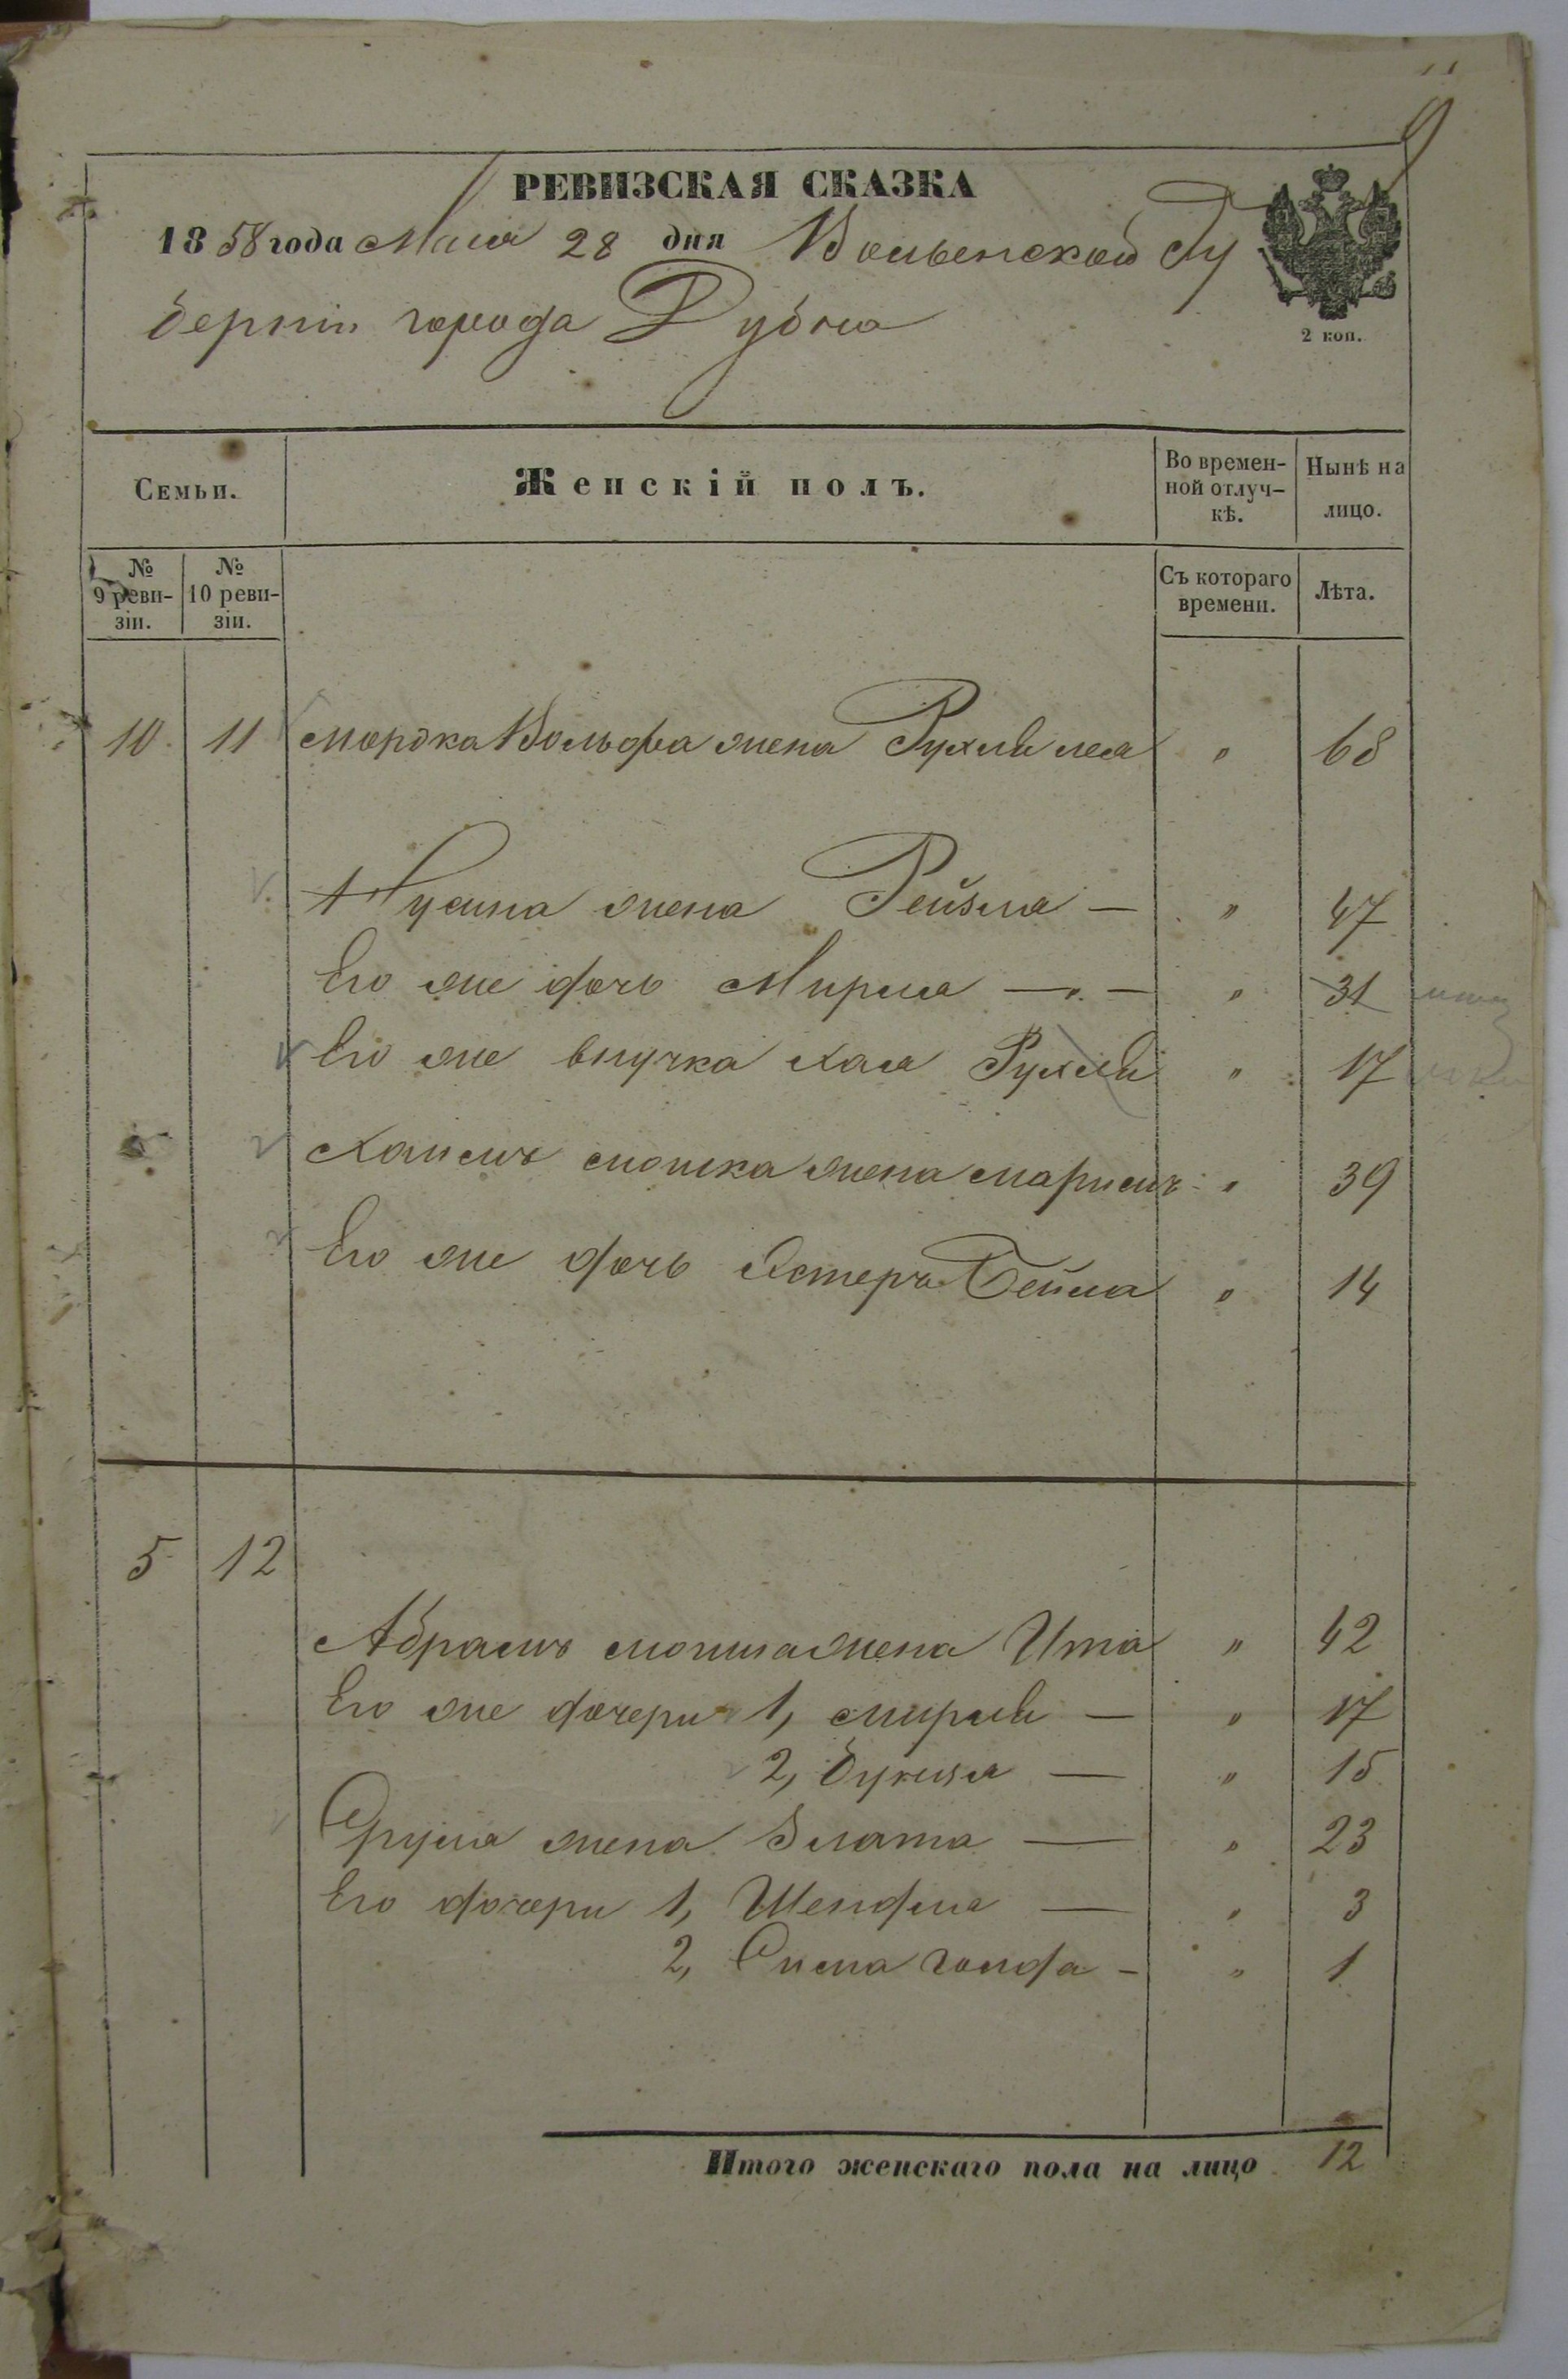 9
РЕВИЗСКАЯ СКАЗКА
1858 года Мая 28 дня Волынской Гу
берніи города Дубна
2 коп.
Семьи.
Женскій полъ.
Во времен-
ной отлуч-
кѣ.
Нынѣ на
лицо.
№
9 реви-
зіи.
№
10 реви-
зіи.
Съ котораго
времени.
Лѣта.
10 11 Мордка Вольфа жена Рухля Лея " 68
Нусина жена Рейзля — " 47
Его же дочь Мирля — " — " 31
Его же внучка Хая Рухля " 17
Хаимъ Мошка жена Маримъ " 39
Его же дочь Эстеръ Бейла " 14
5 12
Абрамъ Мошка жена Ита " 42
Его же дочери 1, Мирля — " 17
2, — " 15
Сруля жена Злата — " 23
Его дочери 1, Шендля — " 3
2, Сима Голда — " 1
Итого женскаго пола на лицо 12